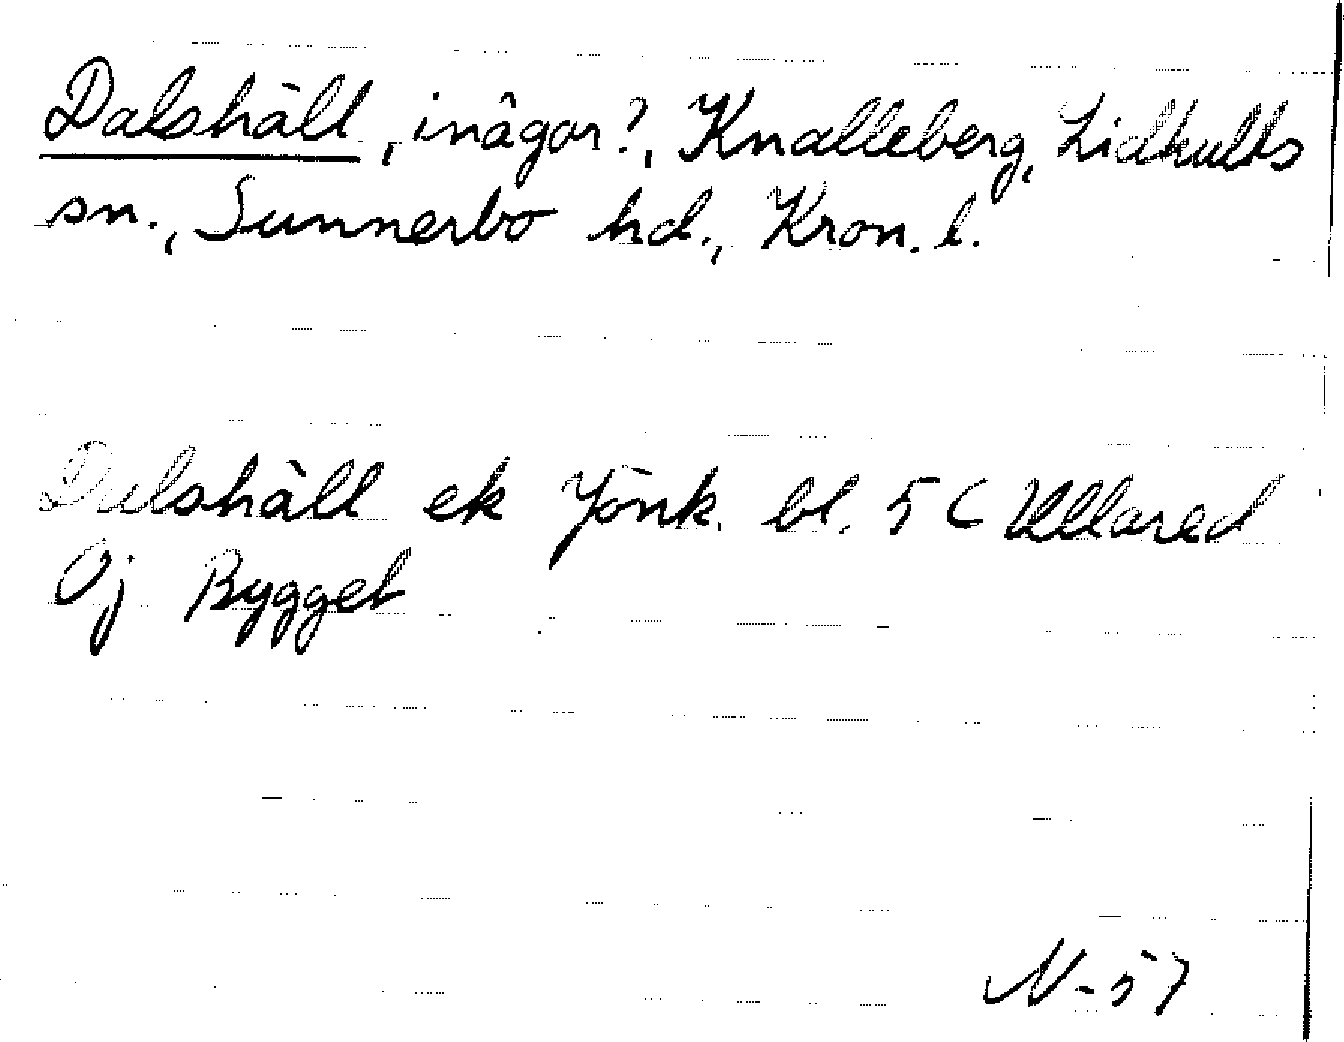 Dalshäll, inägor?, Knalleberg, Lidhults
sn., Sunnerbo hd., Kron. l.
Dalshäll ek Jönk. bl. 5 C Ullared
Oj Bygget
N-57